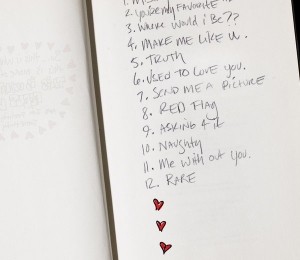 2. You're my FAVORITE
3. Where Would i Be??
4. MAKE ME LIKE U.
5. TRUTH
6. USED TO LOVE YOU.
7. SEND ME A PICTURE
8. RED Flag
9. ASKING 4 it
10. Naughty
11. Me With out You.
12. RARE